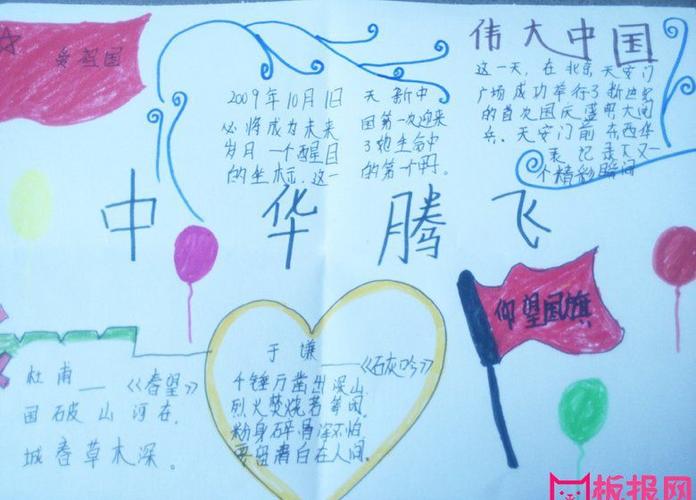 爱祖国
伟大中国
2009年10月1日
必将成为未来
岁月一个醒目
的坐标.这一
天新中
国第一次迎来
了她生命中
的第一个甲.
这一天,在北京天安门
广场成功举行了新世纪
的首次国庆盛明大阅
兵。天安门前东西华
表记录下又一
个精彩瞬间
中华腾飞
仰望国旗
杜甫——《春望》
国破山河在,
城春草木深。
于谦——《石灰吟》
千锤万凿出深山,
烈火焚烧若等闲.
粉身碎骨浑不怕,
要留清白在人间.
板报网